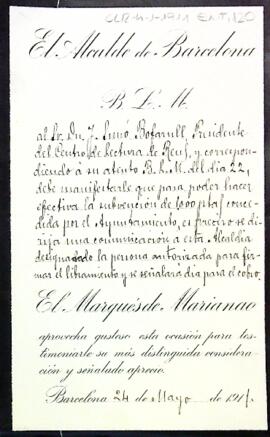 CLR-4-1-1911 Ent, 120
El Alcalde de Barcelona
B. L. M.
al Sr. Dn. J. Simó Bofarull, Presidente
del Centro de Lectura de Reus, y correspon-
diendo a su atento B. L. M. del dia 22,
debe manifestarle que para poder hacer
efectiva la subvención de 1000 pts, conce-
dida por el Ayuntamiento, es preciso se di-
rija una comunicación a esta Alcaldía
designando la persona autorizada para fir-
mar el libramiento y se señalará día para el cobro.
El Marqués de Marianao
aprovecha gustoso esta ocasión para tes-
timoniarle su más distinguida considera-
ción y señalado aprecio.
Barcelona 24 de Mayo de 1911.